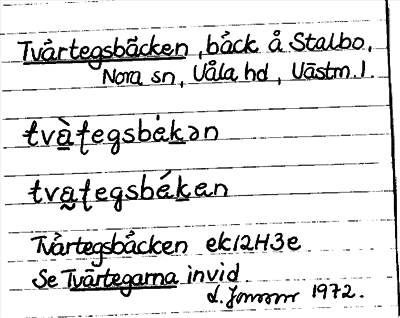 Tvärtegsbäcken, bäck å Stalbo,
Nora sn, Våla hd, Västm. l.
tvà̱ʈegsbéḵən
tva̰ʈegsbéḵen
Tvärtegsbäcken ek12H3e
Se Tvärtegarna invid
1972.